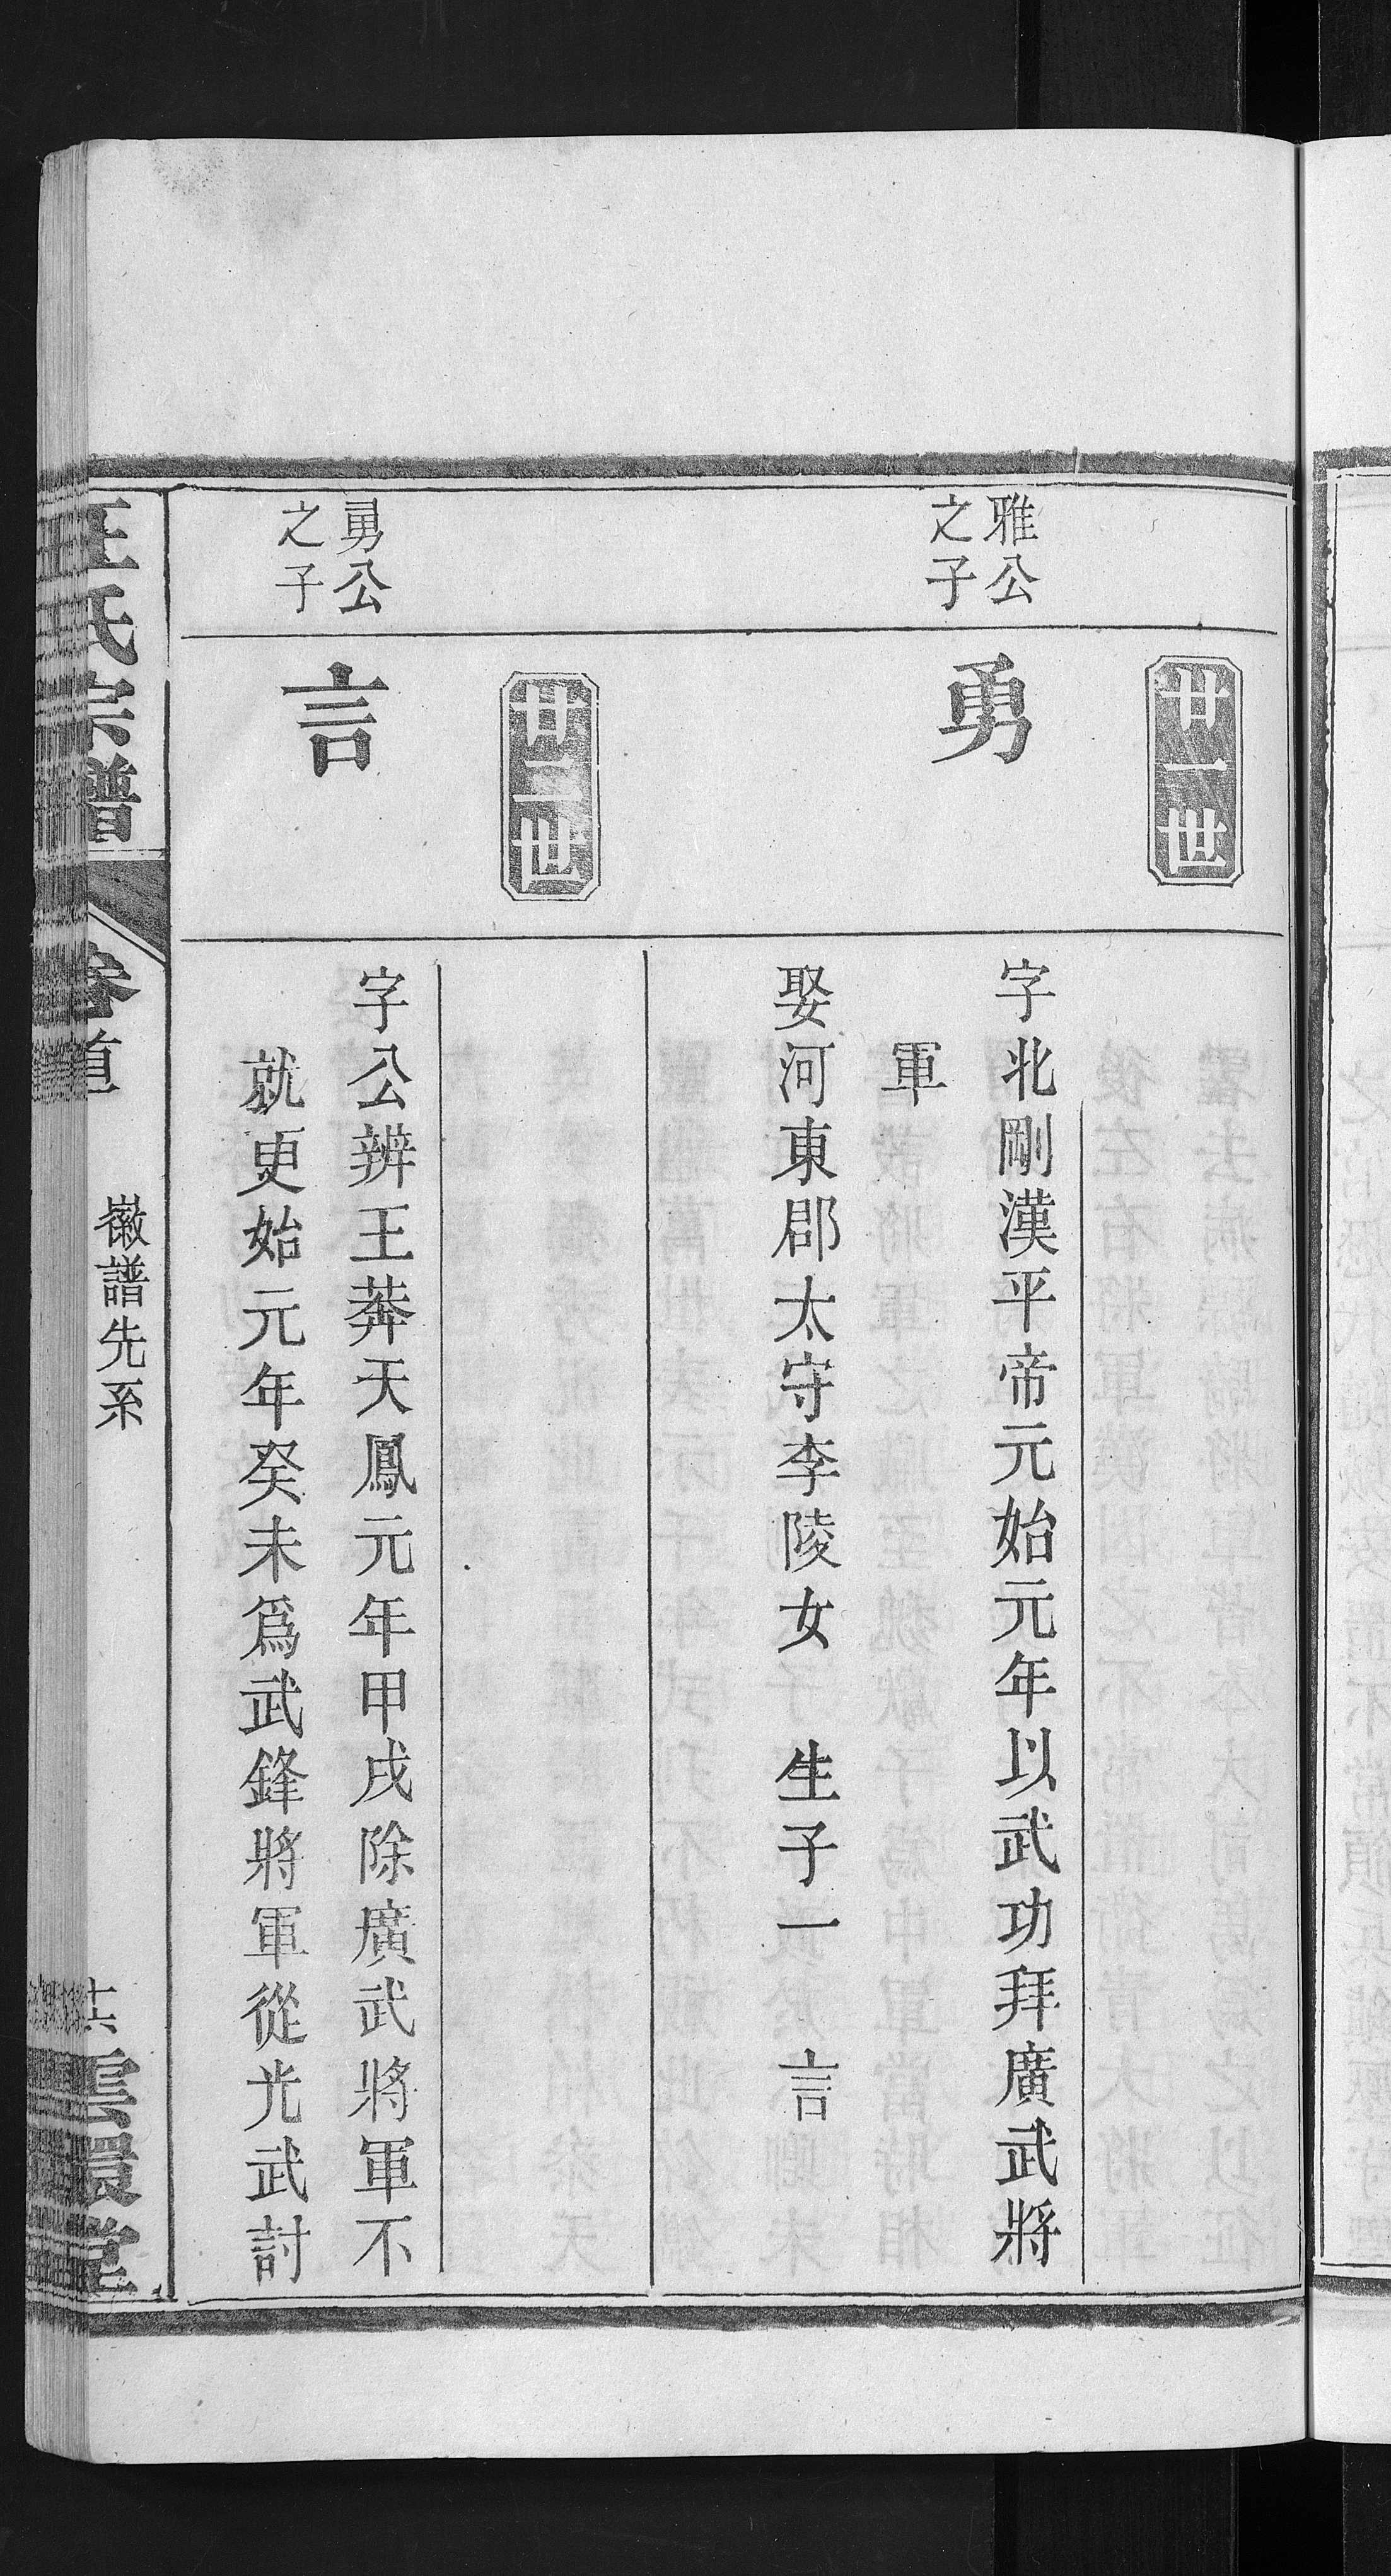 廿一世
雅公
之子
勇
字北剛漢平帝元始元年以武功拜廣武將
軍
娶河東郡太守李陵女　生子一　言
廿二世
勇公
之子
言
字公辨王莽天鳳元年甲戌除廣武將軍不
就更始元年癸未爲武鋒將軍從光武討
汪氏宗譜
卷首
徽譜先系
十六
雲環堂